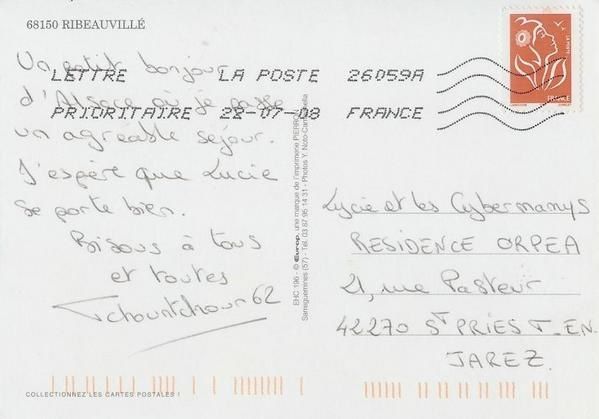 68150 RIBEAUVILLÉ
Un petit bonjour
d'Alsace où je passe
un agréable séjour.
J'espère que Lucie
se porte bien.
Bisous à tous
et toutes
Tchountchour62
LETTRE LA POSTE 26059A
PRIORITAIRE 22-07-08 FRANCE
FRANCE
EHC 196 - © Europ, une marque de l'imprimerie PIERRON
Sarreguemines (57) - Tél. 03 87 95 14 31 - Photos Y. Noto-Campanella
Lycie et les Cybermamys
RESIDENCE ORPEA
21, rue Pasteur
42270 ST PRIEST-EN-
JAREZ
COLLECTIONNEZ LES CARTES POSTALES !